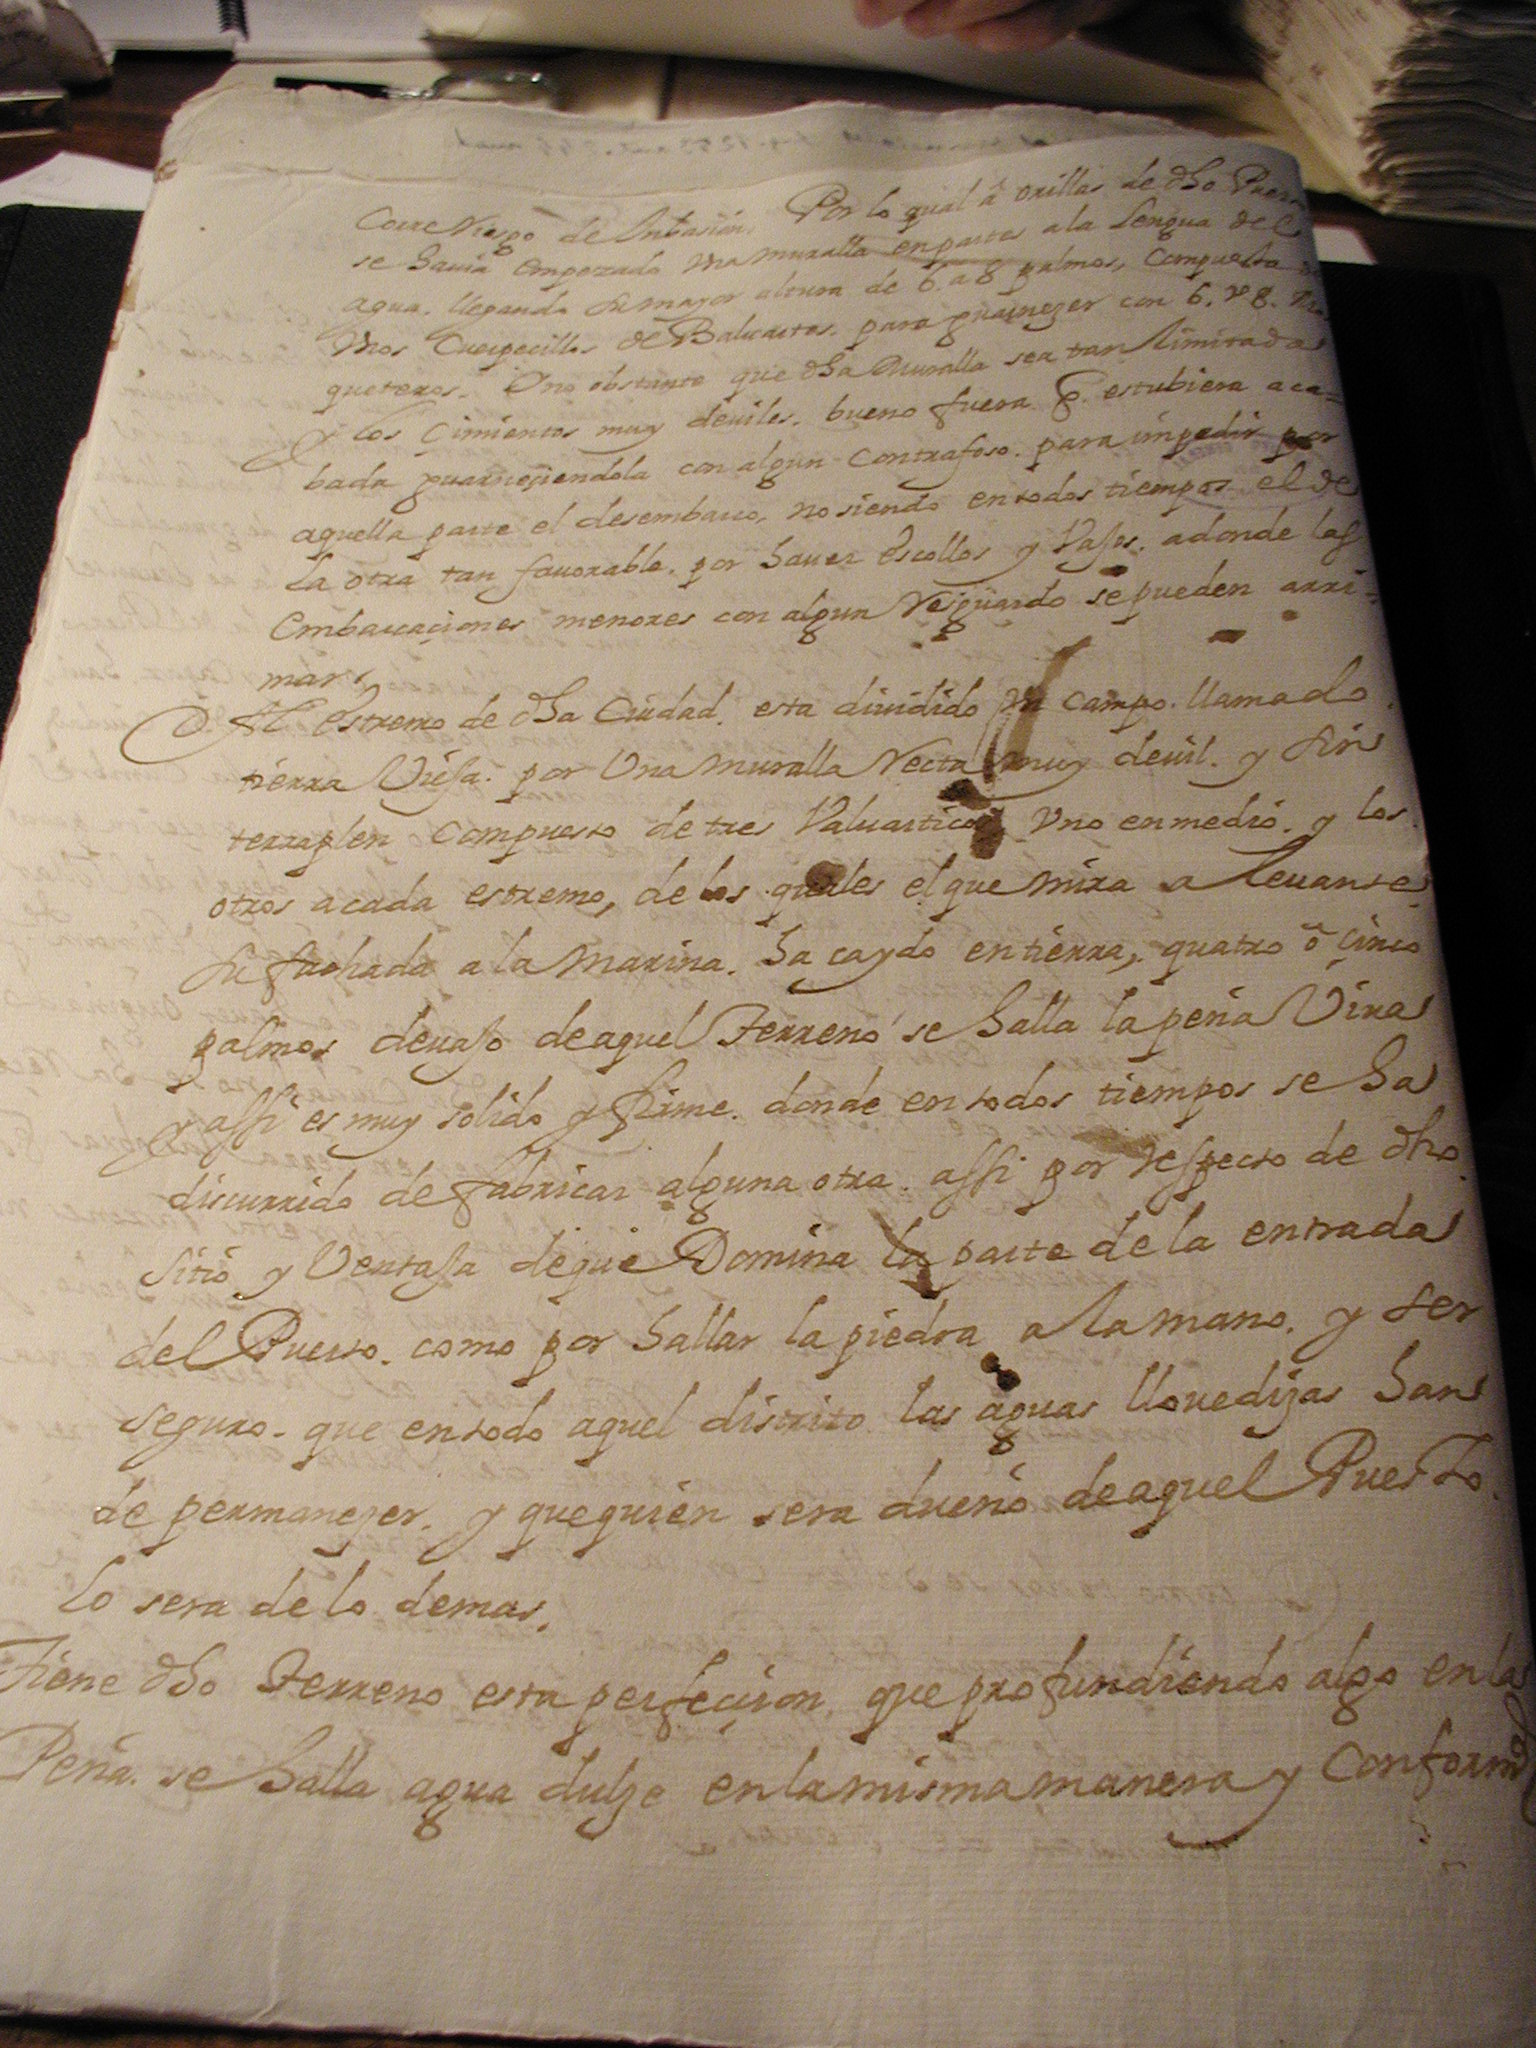 corre Riesgo de Inbasion. Por lo qual â orillas de dho Puer
se hauia empezado una muralla en partes a la lengua del
agua. llegando su mayor altura de 6. a 8 palmos, compuesta
unos Cuerpecillos de Baluartes. para guarnezer con 6. v 8.
queteros. I no obstante que dha Muralla sea tan limitada
y los Cimientos muy deuiles. bueno fuera q. estubiera aca-
bada guarneziendola con algun contrafoso. para impedir por
aquella parte el desembarco, no siendo en todos tiempos el de
la otra tan fauorable. por hauer escollos y Vajos. adonde las
Embarcaciones menores con algun Resguardo se pueden arri-
mar.
Al estremo de dha Ciudad. esta diuidido un campo. llamado
tierra Vieja. por Una muralla Recta muy deuil. y sin
terraplen compuesto de tres Valuarticos Uno en medio. y los
otros a cada estremo, de los quales el que mira a leuante
su fachada a la Marina. ha caydo en tierra, quatro ô cinco
palmos deuajo de aquel Terreno se halla la peña Viua
y assi es muy solido y firme. donde en todos tiempos se ha
discurrido de fabricar alguna otra. assi por respecto de dho
sitio y Ventaja de que Domina la parte de la entrada
del Puerto. como por hallar la piedra a la mano. y ser
seguro. que en todo aquel distrito las aguas llouedizas han
de permanezer. y que quien sera dueño de aquel Puesto
lo sera de lo demas.
Tiene dho Terreno esta perfeçion, que profundiendo algo en la
Peña. se halla agua dulze en la misma manera y Conform